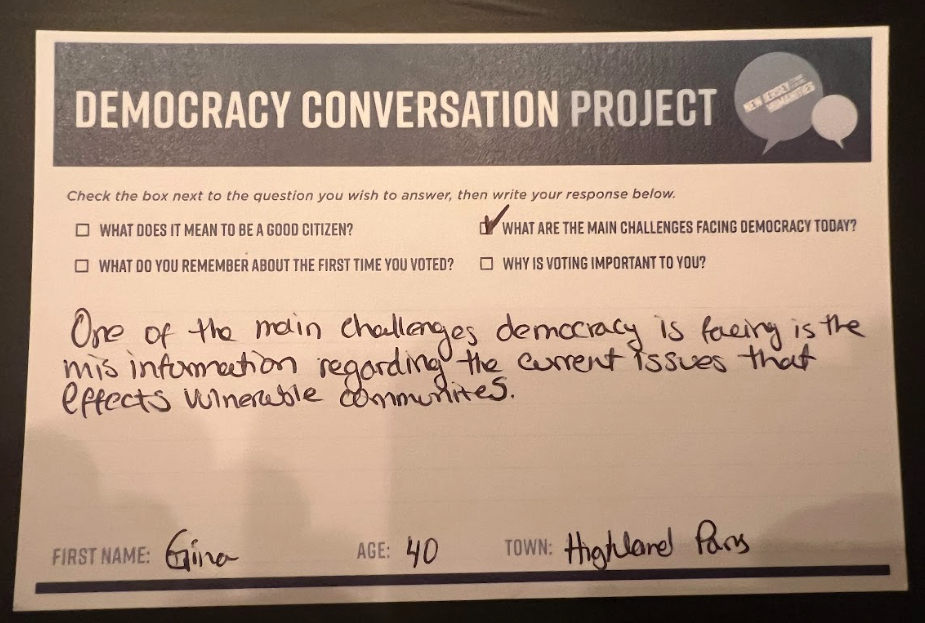 DEMOCRACY CONVERSATION PROJECT
NEW JERSEY
HUMANITIES
Check the box next to the question you wish to answer, then write your response below.
WHAT DOES IT MEAN TO BE A GOOD CITIZEN?
WHAT ARE THE MAIN CHALLENGES FACING DEMOCRACY TODAY?
WHAT DO YOU REMEMBER ABOUT THE FIRST TIME YOU VOTED?
WHY IS VOTING IMPORTANT TO YOU?
One of the main challenges democracy is facing is the
mis information regarding the current issues that
effects vulnerable communites.
FIRST NAME: Gina AGE: 40 TOWN: Highland Park